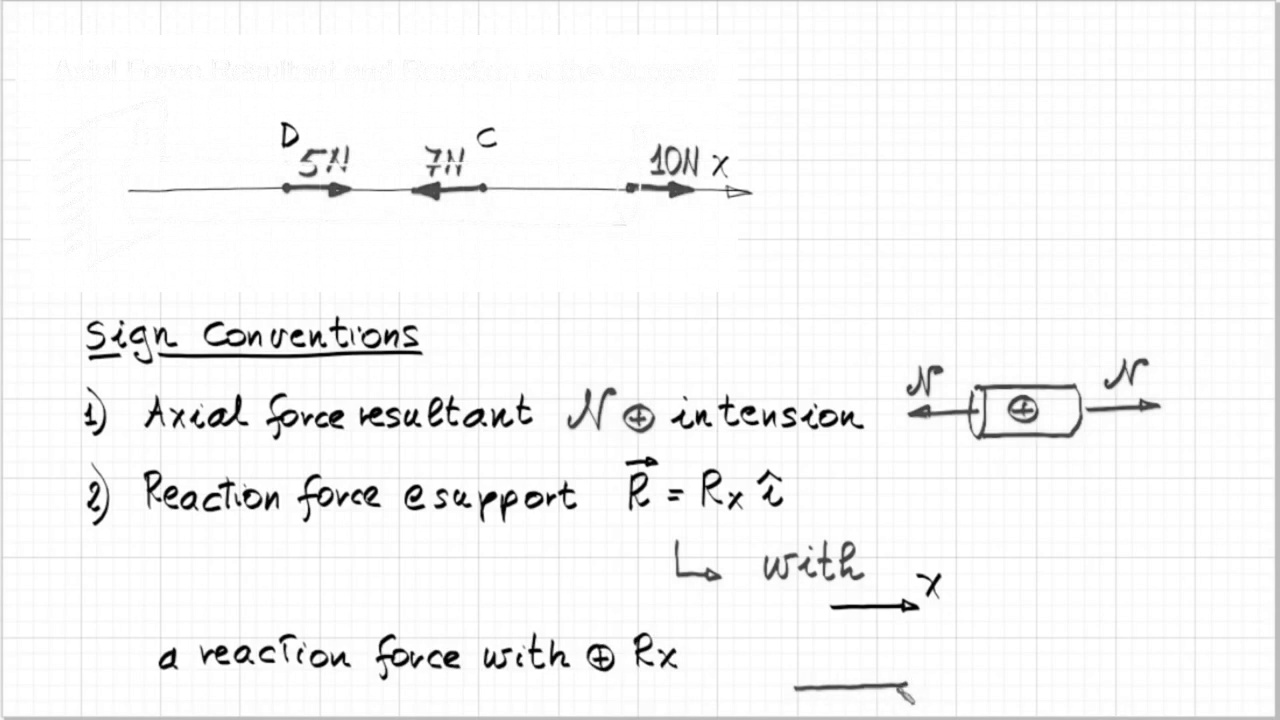 Axial Force Resultant and Reaction at the Support
D C
5N 7N 10N x
Sign Conventions
1) Axial force resultant N ⊕ in tension N ⊕ N
2) Reaction force @ support R⃗ = Rx î
↳ with
x
a reaction force with ⊕ Rx